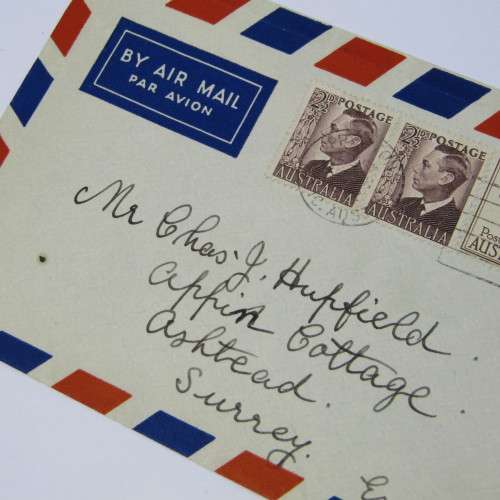 BY AIR MAIL
PAR AVION
2½D POSTAGE
AUSTRALIA
2½D POSTAGE
AUSTRALIA
Mr Chas. J. Hupfield.
Appin Cottage.
Ashtead.
Surrey.